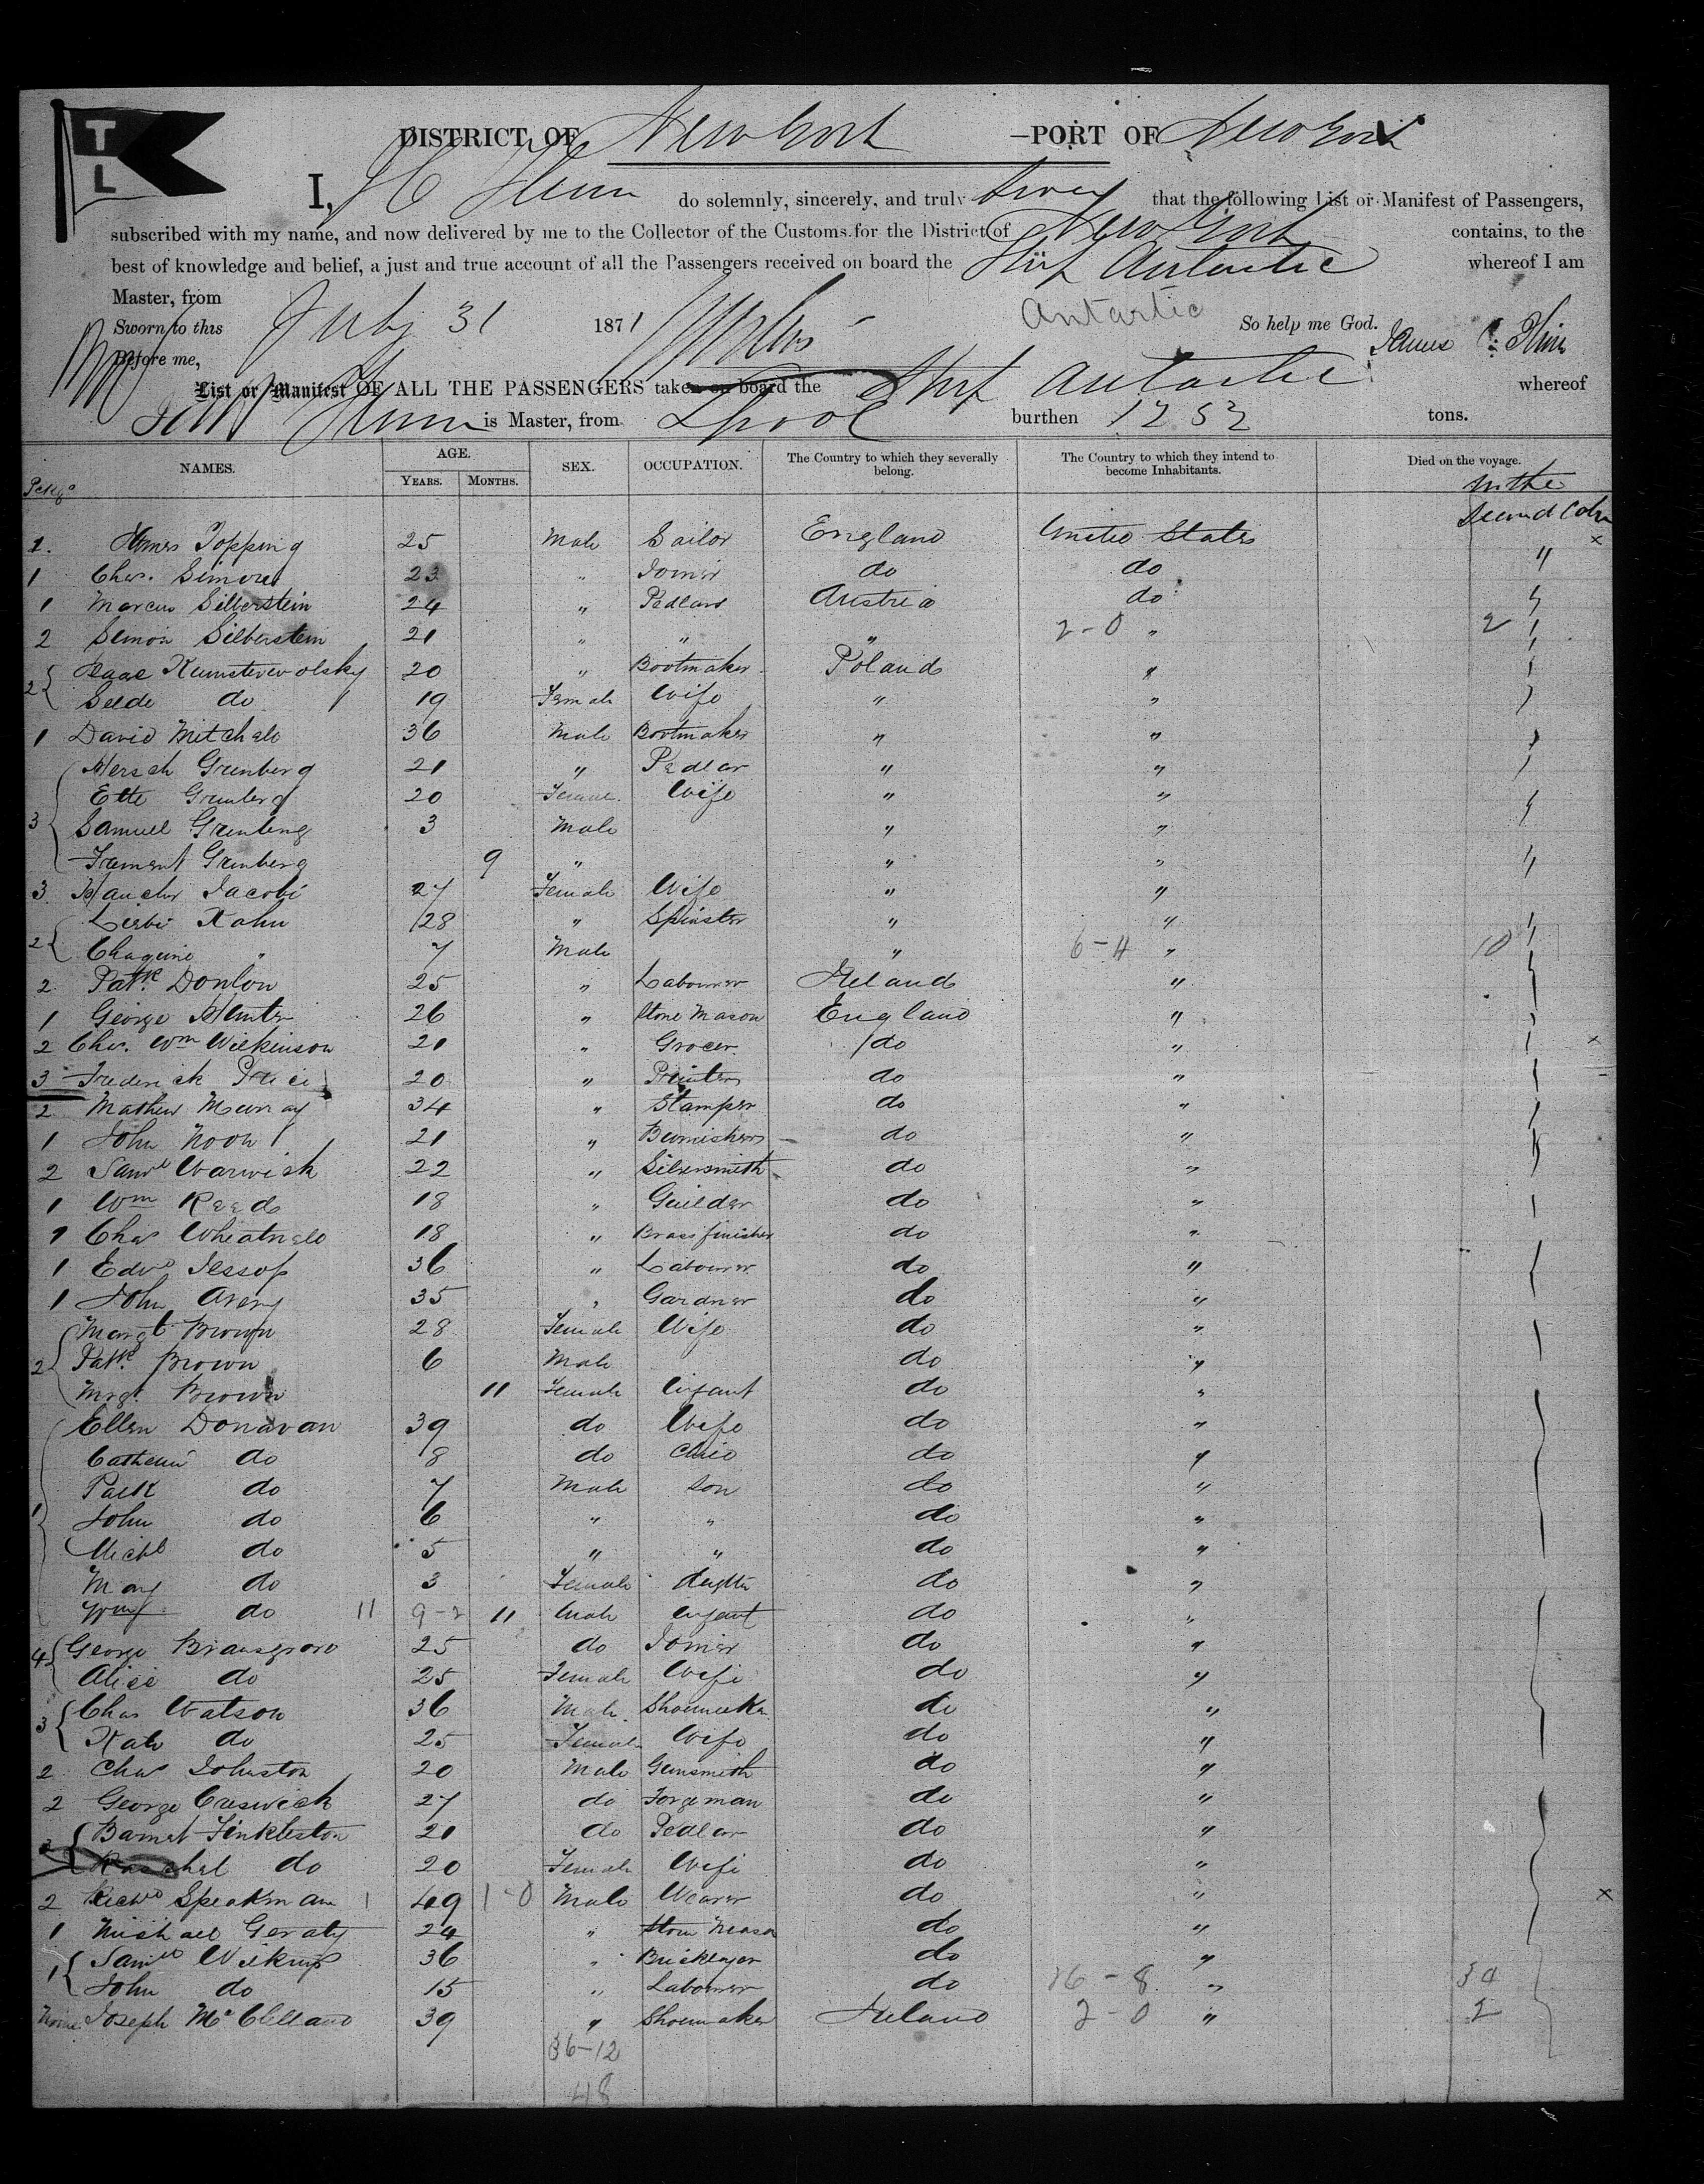 T
L
DISTRICT OF New York PORT OF New York
I, do solemnly, sincerely, and truly that the following List or Manifest of Passengers,
subscribed with my name, and now delivered by me to the Collector of the Customs for the District of New York contains, to the
best of knowledge and belief, a just and true account of all the Passengers received on board the Ship Antartic whereof I am
Master, from
Antartic
Sworn to this July 31 1871 So help me God.
Before me, James C.
List or Manifest OF ALL THE PASSENGERS taken on board the Ship Antartic whereof
is Master, from Lpool burthen 1252 tons.
NAMES. AGE. YEARS. MONTHS. SEX. OCCUPATION. The Country to which they severally belong. The Country to which they intend to become Inhabitants. Died on the voyage.
Pckgs In the
Second Cabin
1. James Topping 25 Male Sailor England United States ×
1 Chas. Simons 23 " Joiner do do "
1 Marcus Silberstein 24 " Pedlar Austria do "
2 Simon Silberstein 21 " " " 2-0 " 2
2 { Isaac 20 " Bootmaker Poland "
Selde do 19 Female Wife " "
1 David Mitchale 36 Male Bootmaker " "
3 { Hersch Grunberg 21 " Pedlar " "
Ette Grunberg 20 Female Wife " "
Samuel Grunberg 3 Male " "
Grunberg 9 " " "
3 Jacobi 27 Female Wife " "
2 { Kahn 28 " Spinster " "
" 7 Male " 6-4 " 10
2 Patk Donlon 25 " Labourer Ireland "
1 George Hunter 26 " Stone Mason England "
2 Chas. Wm Wilkinson 21 " Grocer do " ×
3 Frederick Price 20 " Printer do "
2 Mathew Murray 34 " Stamper do "
1 John Noon 21 " Burnisher do "
2 Saml Warwick 22 " Silversmith do "
1 Wm Reed 18 " Guilder do "
1 Chas 18 " Brass finisher do "
1 Edwd Jessop 36 " Labourer do "
1 John Avery 35 " Gardner do "
2 { Margt Brown 28 Female Wife do "
Patk Brown 6 Male do "
Mrgt Brown 11 Female Infant do "
1 { Ellen Donavan 39 do Wife do "
Catherin do 8 do Child do "
Patk do 7 Male Son do "
John do 6 " " do "
Michl do 5 " " do "
Mary do 3 Female do "
do 11 9-2 11 Male Infant do "
4 { George Bransgrove 25 do Joiner do "
Alice do 25 Female Wife do "
3 { Chas Watson 36 Male Shoemaker do "
Kate do 25 Female Wife do "
2 Chas Johnston 20 Male Gunsmith do "
2 George Creswick 27 do Forgeman do "
2 { Barnet Finkleston 21 do Pedlar do "
Raschel do 20 Female Wife do "
2 Richd Speakman 1 49 1-0 Male Weaver do " ×
1 Michael Geraty 24 " Stone Mason do "
1 { Saml 36 " Bricklayer do "
John do 15 " Labourer do 26-8 " 34
None Joseph McClelland 39 " Shoemaker Ireland 2-0 " 2
36-12
48